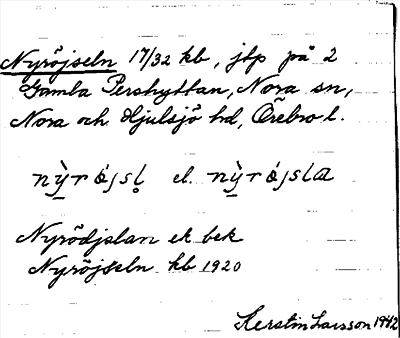 Nyröjseln 17/32 kb, jtp på 2
Gamla Pershyttan, Nora sn,
Nora och Hjulsjö hd, Örebro l.
nỳ̱röjsl̥ el. nỳ̱röjsla
Nyrödjslan ek bek
Nyröjseln kb 1920
Kerstin Larsson 1942